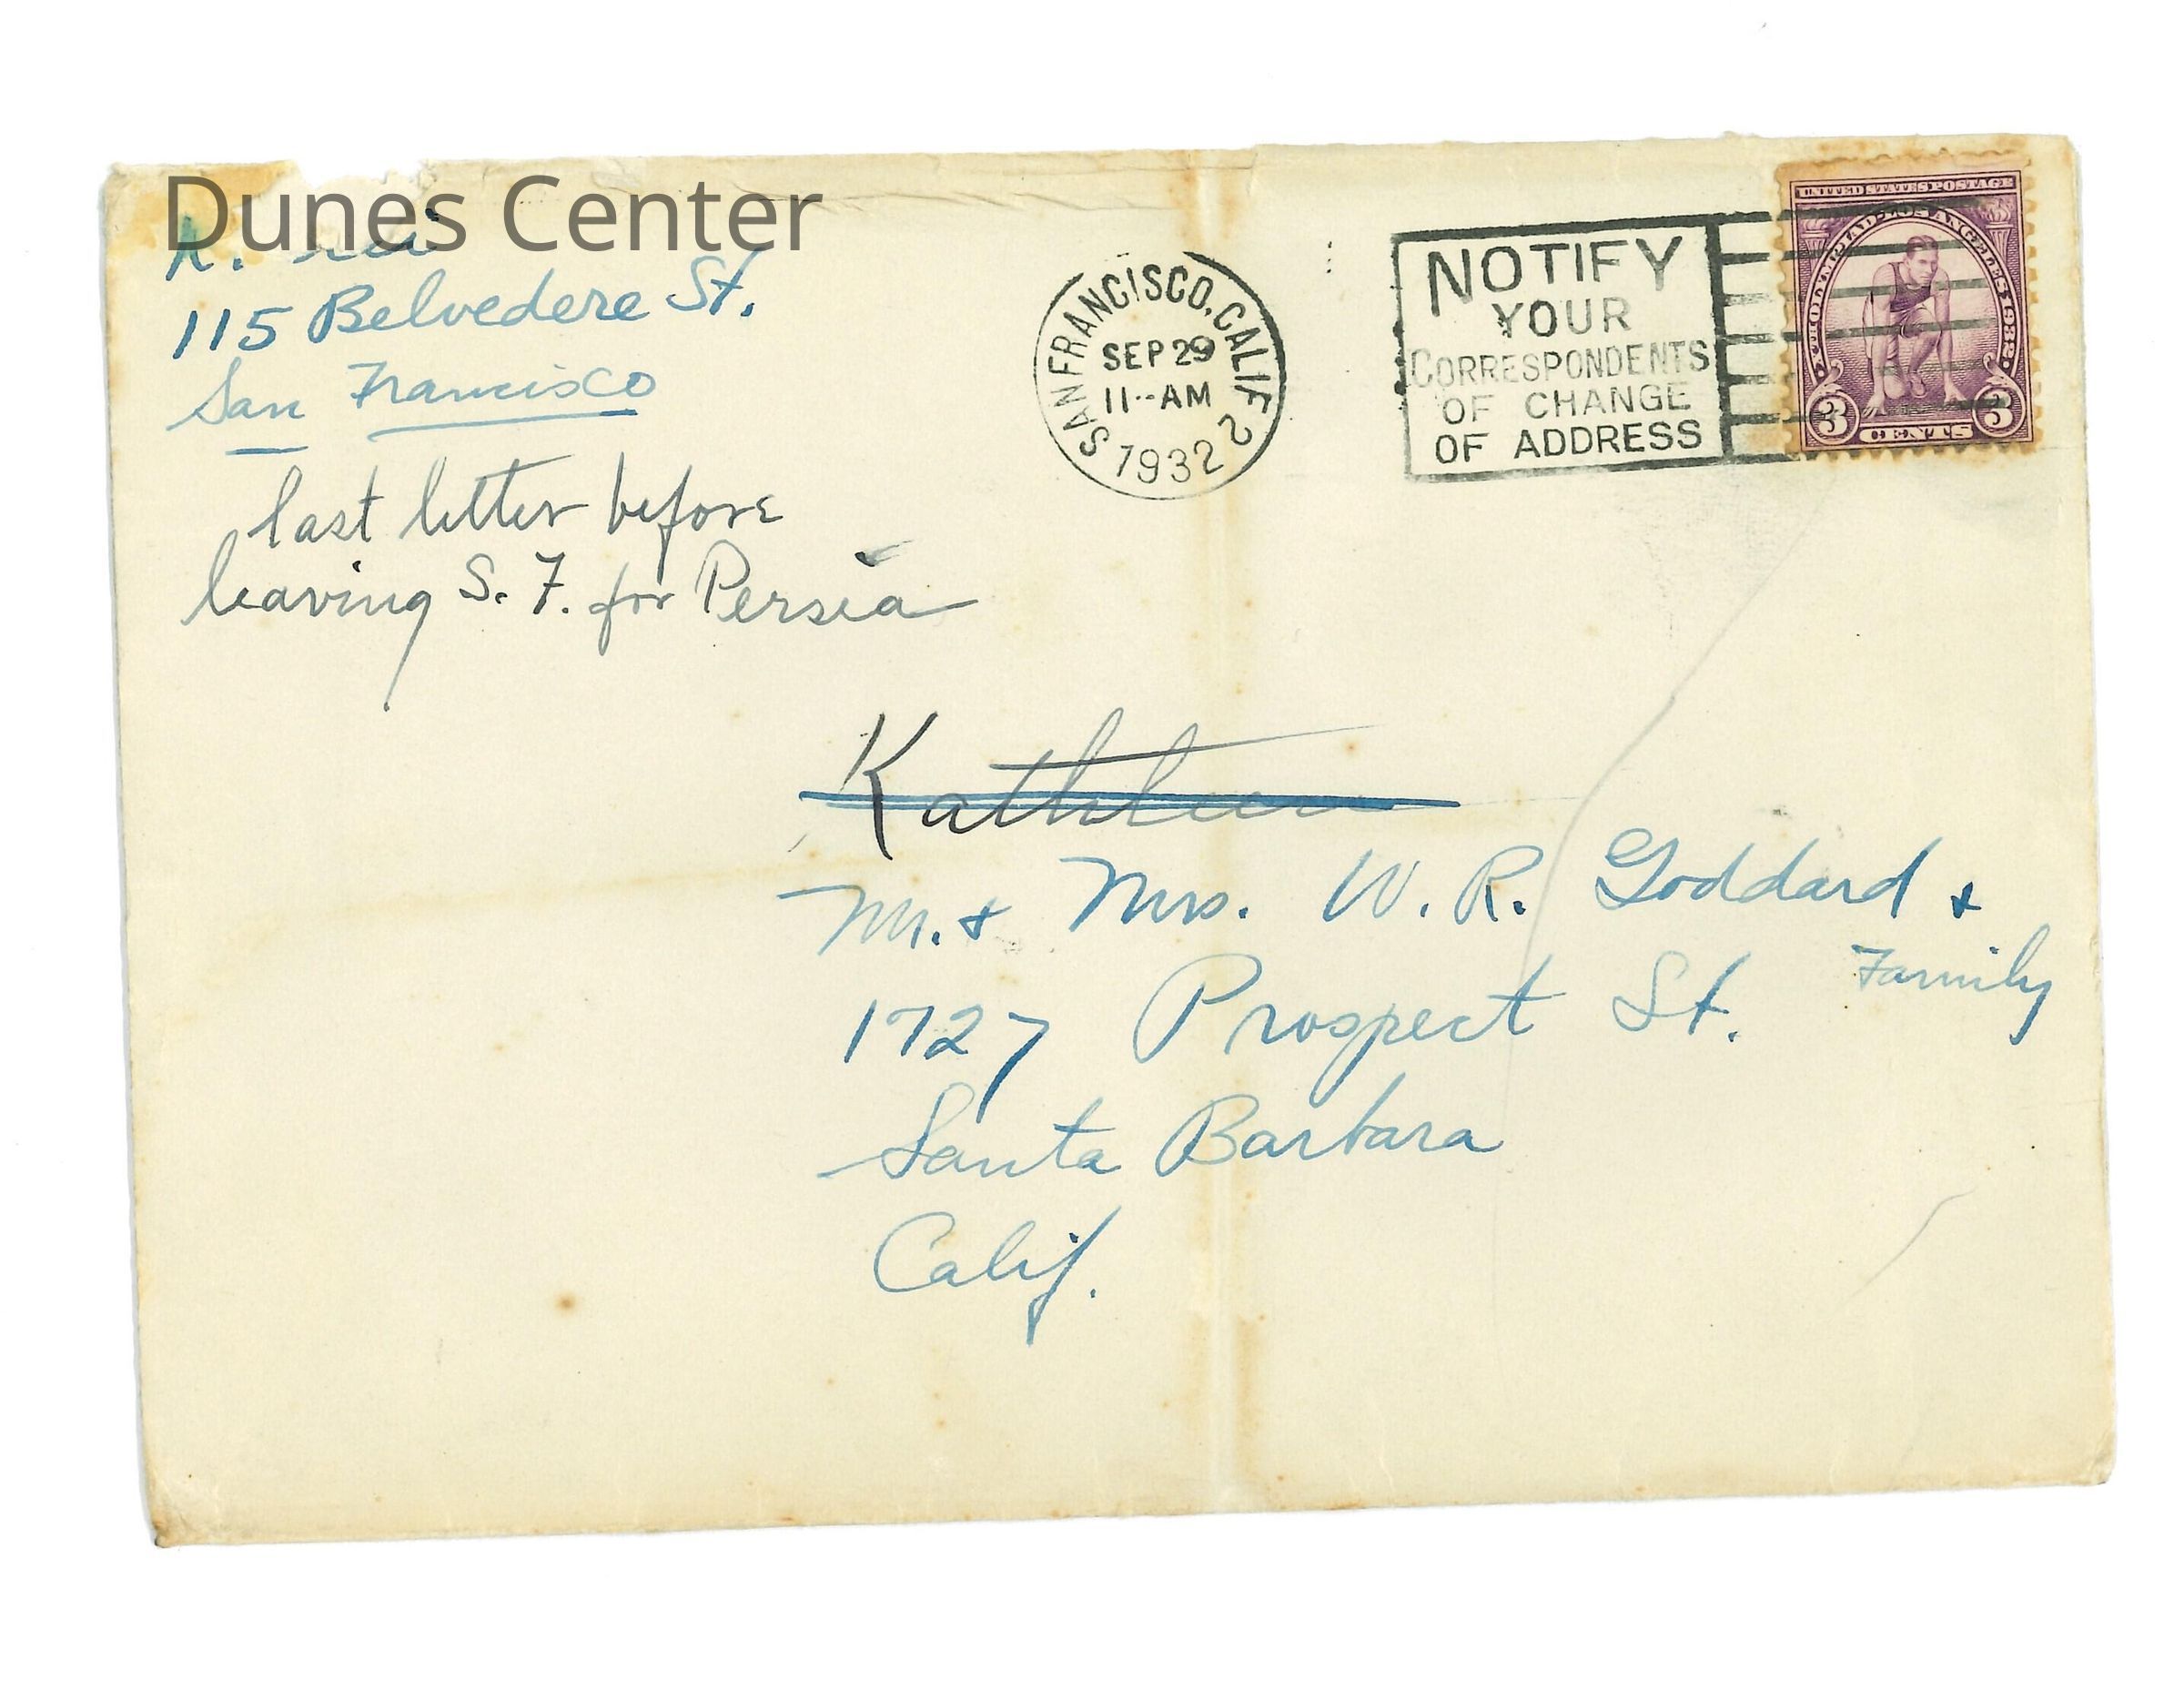 Dunes Center
115 Belvedere St.
San Francisco
last letter before
leaving S. F. for Persia
SAN FRANCISCO, CALIF. 2
SEP 29
11-AM
1932
NOTIFY
YOUR
CORRESPONDENTS
OF CHANGE
OF ADDRESS
UNITED STATES POSTAGE
Xth OLYMPIAD LOS ANGELES 1932
3 CENTS 3
Kathleen
Mr. & Mrs. W. R. Goddard &
Family
1727 Prospect St.
Santa Barbara
Calif.